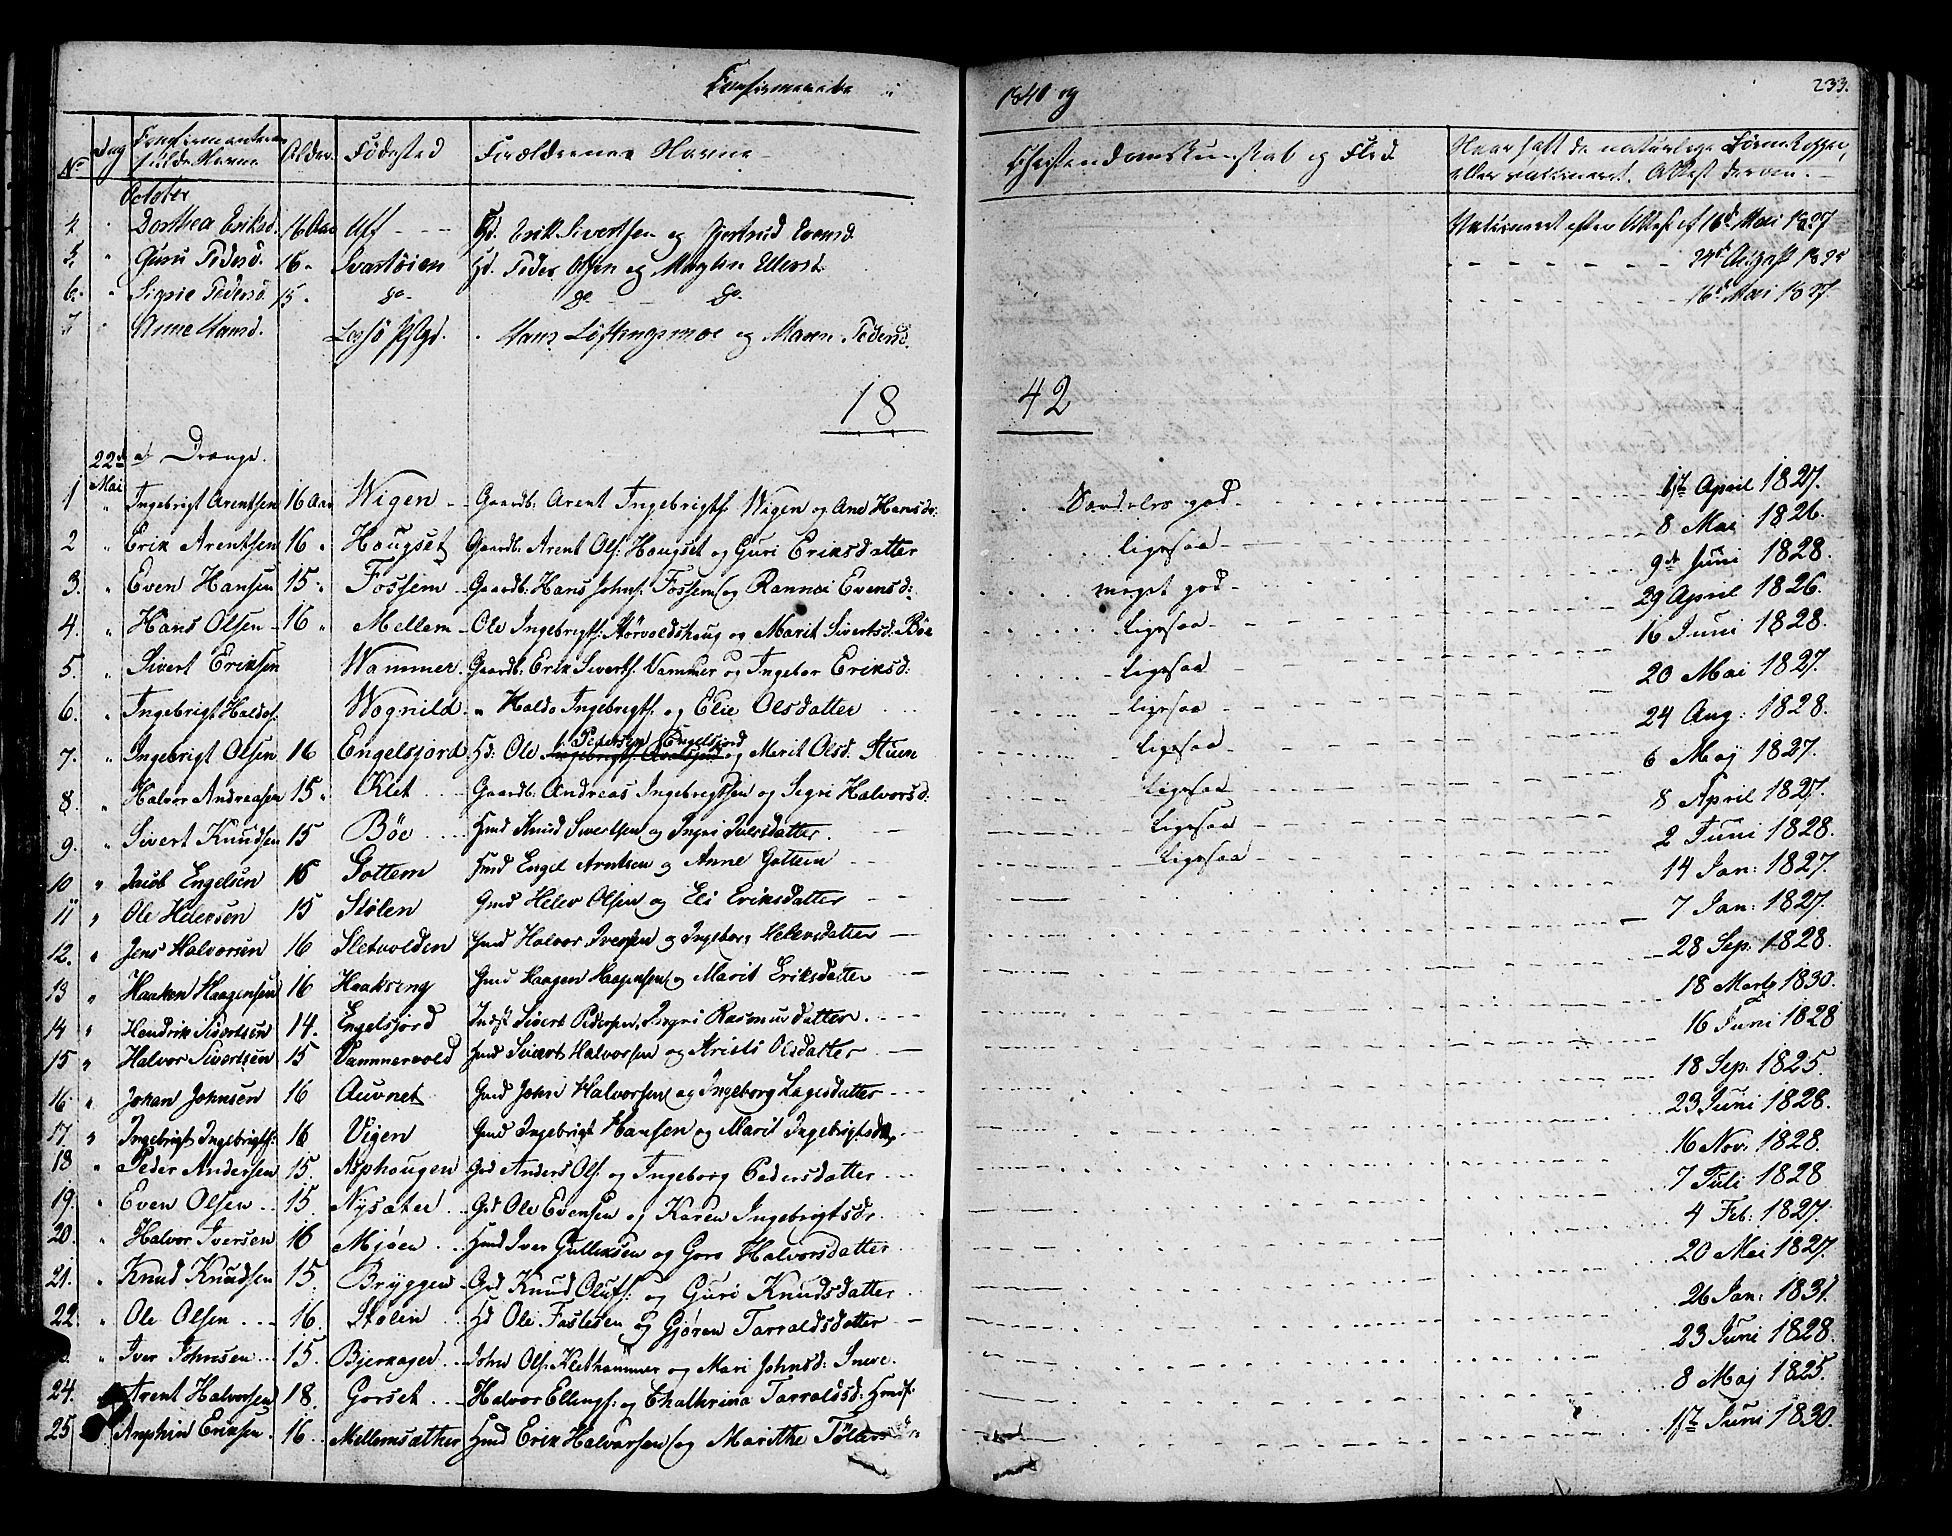 Confirmerede i 1841 og
233.
No Dag Confirmanternes fulde Navne Alder Fødested Forældrenes Navne Christendomskundskab og Flid Naar haft de naturlige Børnekopper, eller vaccineret. Attest derom.
October
4 " Dorthea Eriksd. 16 Aar Uff Gd. Erik Sivertsen og Gjertrud Evensd. Vaccineret efter Attest af 16d Mai 1827
5. " Guru Pedersd. 16 " Svartøien Hd. Peder Olsen og Magli Ellevsd. 24d August 1825
6. " Sigrie Pedersd. 15 " do do do 16d Mai 1827
7 " Anne Hansd. Hans Løftingsmoe og Maren Pedersd.
18 42
22d Mai a) Drenge.
1 " Ingebrigt Arentsen 16 Aar Wigen Gaardb. Arent Ingebrigts. Wigen og Ane Hansdr: Sændeles god 1ste April 1827.
2 " Erik Arentsen 16 " Haugset Gaardb. Arent Ols. Haugset og Guri Eriksdatter ligesaa 8 Mai 1826.
3. " Even Hansen 15 " Fossem Gaardb: Hans Johns. Fossem og Rannei Evensd: meget god 9de Juni 1828.
4. " Hans Olsen 16 " Mellem Ole Ingebrigts. Størvoldshaug og Marit Sivertsd. Bøe ligesaa 29 April 1826.
5. " Sivert Eriksen Wammer. Gaardb: Erik Siverts. Vammer og Ingebor Eriksd: ligesaa 16 Juni 1828.
6. " Ingebrigt Haldos. Wognild " Haldo Ingebrigts. og Elie Olsdatter ligesaa 20 Mai 1827.
7. " Ingebrigt Olsen 16 Engelsjord Hd: Ole Pedersen Engelsjord og Marit Olsd. Stuen ligesaa 24 Aug: 1828.
8. " Halvor Andreasen 15 " Klet Gaardb. Andreas Ingebrigtsen og Segri Halvorsd: ligesaa 6 Maj 1827.
9. " Sivert Knudsen 15 Bøe Hmd Knud Sivertsen og Ingri Iversdatter. ligesaa 8 April 1827.
10 " Jacob Engelsen 16 Gottem Hmd Engel Arntsen og Anne Gottem ligesaa 2 Juni 1828.
11 " Ole Helevsen 15 Stølen Gmd Helev Olsen og Eli Eriksdatter 14 Jan: 1827.
12. " Jens Halvorsen 16. Sletvolden Hmd Halvor Iversen og Ingebor Helevsdatter 7 Jan: 1827.
13 " Haaken Haagensen 16 Haakseng Hmd Haagen Haagensen og Marit Eriksdatter 28 Sep: 1828.
14 " Hendrik Sivertsen 14. Engelsjord Indst Sivert Pedersen, Ingri Rasmusdatter. 18 Marts 1830.
15 " Halvor Sivertsen 15 Vammervold Hmd Sivert Halvorsen og Kristi Olsdatter 16 Juni 1828
16 " Johan Johnsen 16 Auvnet Hmd John Halvorsen og Ingeborg Lagesdatter 18 Sep: 1825.
17. " Ingebrigt Ingebrigts: 16 Vigen Hmd Ingebrigt Hansen og Marit Ingebrigtsd. 23 Juni 1828.
18 " Peder Andersen 15. Asphougen Gd Anders Ols. og Ingeborg Pedersdatter 16 Nov: 1828.
19. " Even Olsen 15. Nysæter Gd Ole Evensen og Karen Ingebrigtsdr. 7 Juli 1828
20. " Halvor Iversen 16 Mjøen Hmd Iver Gulliksen og Goro Halvorsdatter 4 Feb: 1827.
21. " Knud Knudsen 15. Bryggen Gd Knud Olufs. og Guri Knudsdatter 20 Mai 1827.
22. " Ole Olsen 16. Stølen Hd Ole Fastesen og Gjøren Tarraldsdatter 26 Jan: 1831.
" Iver Johnsen 15. Bjerkager John Ols. Klethammer og Mari Johnsd: Sneve. 23 Juni 1828.
24. Arent Halvorsen 18. Gorset Halvor Ellings. og Chathrina Tarraldsd: 8 Maj 1825.
25 Amphin Eriksen. 16. Mellemsæther Hmd Erik Halvorsen og Marithe 1ste Juni 1830.